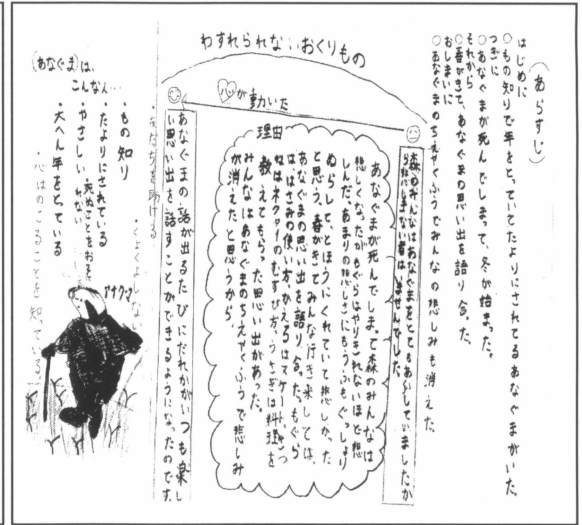 わすれられないおくりもの
(あらすじ)
はじめに
○もの知りで年をとっていてたよりにされてるあなぐまがいた。
つぎに
○あなぐまが死んでしまって、冬が始まった。
それから
○春がきて、あなぐまの思い出を語り合った。
おしまいに
○あなぐまのちえやくふうでみんなの悲しみも消えた
心が動いた
森のみんなはあなぐまをとてもあいしていましたか
ら悲しまない者はいませんでした。
理由
あなぐまが死んでしまって森のみんなは
悲しくなったがもぐらはやりきれないほど悲
しんだ。あまりの悲しさにもうふもぐっしょり
ぬらして、とほうにくれていて悲しかった
と思う。春がきてみんな行き来しては、
あなぐまの思い出を語り合った。もぐら
は、はさみの使い方、かえるはスケート、きつ
ねはネクタイのむすび方、うさぎは料理を
教えてもらった思い出があった。
みんなはあなぐまのちえやくふうで悲しみ
が消えたと思うから。
あなぐまの話が出るたびにだれかがいつも楽し
い思い出を話すことができるようになったのです。
(あなぐま)は、
こんな人…
・もの知り
・たよりにされている
・やさしい
・死ぬことをおそれない
・大へん年をとっている
・くよくよしない
・友だちを助ける
・心はのこることを知っている
アナグマ